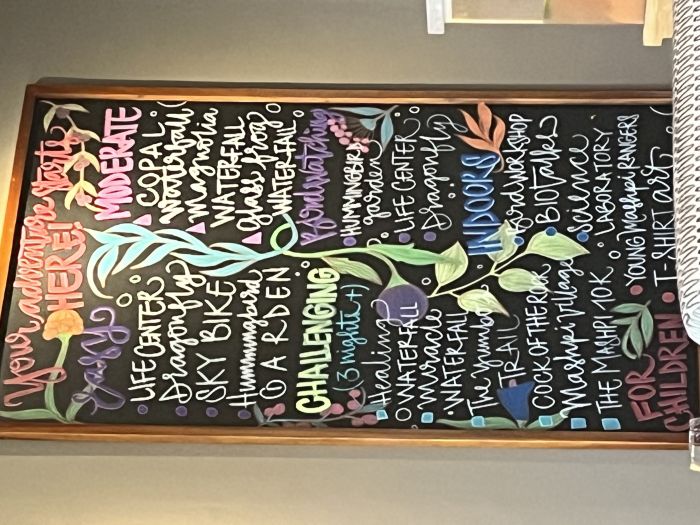 Your adventure starts
HERE!
Easy
LIFE CENTER
Dragonfly
SKY BIKE
Hummingbird
GARDEN
CHALLENGING
(3 nights +)
Healing
WATERFALL
Miracle
WATERFALL
The Yumbos
TRAIL
COCK OF THE ROCK
Mashpi Village
THE MASHPI 10K
FOR
CHILDREN
MODERATE
COPAL
waterfall
magnolia
WATERFALL
glass frog
WATERFALL
Birdwatching
HUMMINGBIRD
garden
LIFE CENTER
Dragonfly
INDOORS
WORKSHOP
BIO Talks
Science
LABORATORY
YOUNG MASHPI RANGERS
T-SHIRT art